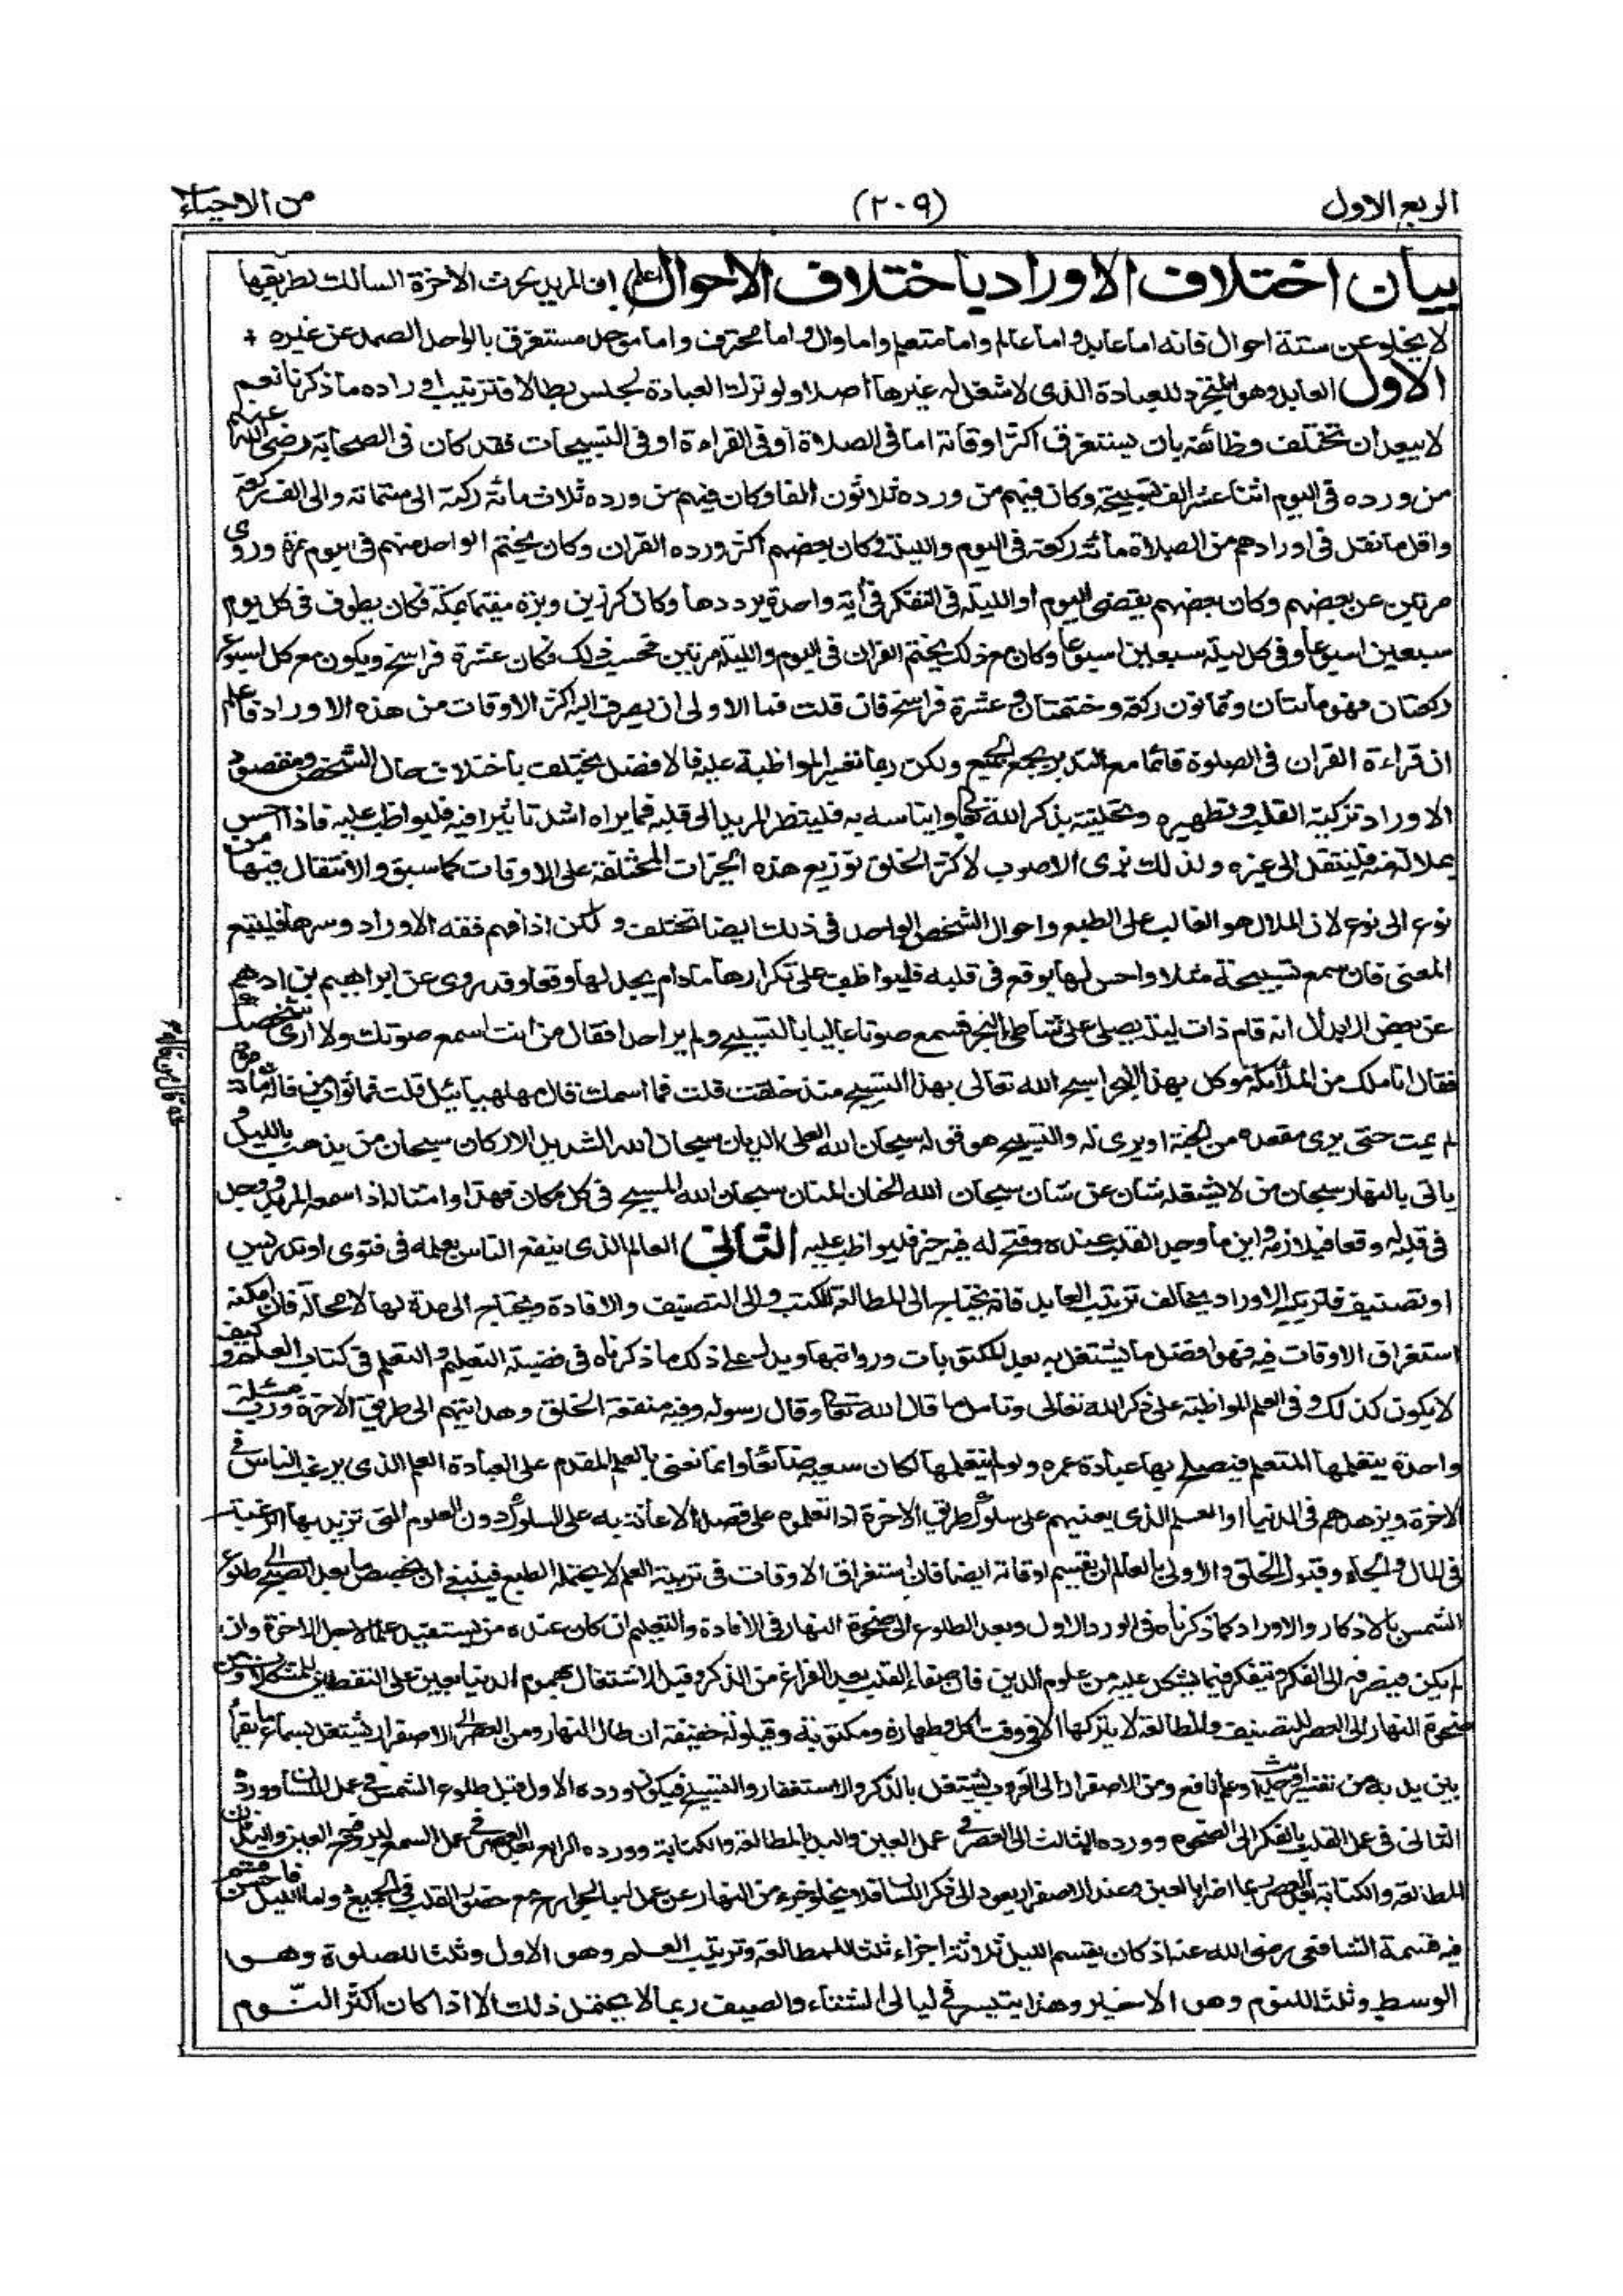 الربع الاول
(٢٠٩)
من الاحياء
بيان اختلاف الاوراد باختلاف الاحوال اعلم ان المريد لحرث الاخرة السالك لطريقها
لا يخلو عن ستة احوال فانه اما عابد واما عالم واما متعلم واما وال واما محترف واما موحد مستغرق بالواحد الصمد عن غيره +
الاول العابد وهو المتجرد للعبادة الذى لا شغل له غيرها اصلا ولو ترك العبادة لجلس بطالا فترتيب اوراده ما ذكرنا نعم
لا يبعد ان تختلف وظائفه بان يستغرق اكثر اوقاته اما فى الصلاة او فى القراءة او فى التسبيحات فقد كان فى الصحابة رضى الله عنهم
من ورده فى اليوم اثنا عشر الف تسبيحة وكان فيهم من ورده ثلاثون الفا وكان فيهم من ورده ثلاث مائة ركعة الى ستمائة والى الف ركعة
واقل ما نقل فى اورادهم من الصلاة مائة ركعة فى اليوم والليلة وكان بعضهم اكثر ورده القران وكان يختم الواحد منهم فى اليوم مرة وروى
مرتين عن بعضهم وكان بعضهم يقضى اليوم او الليلة فى التفكر فى اية واحدة يرددها وكان كرز بن وبرة مقيما بمكة فكان يطوف فى كل يوم
سبعين اسبوعا وفى كل ليلة سبعين اسبوعا وكان مع ذلك يختم القران فى اليوم والليلة مرتين فحسب ذلك فكان عشرة فراسخ ويكون مع كل اسبوع
ركعتان فهو مائتان وثمانون ركعة وختمتان وعشرة فراسخ فان قلت فما الاولى ان يصرف اليه اكثر الاوقات من هذه الاوراد فاعلم
ان قراءة القران فى الصلوة قائما مع التدبر يجمع الجميع ولكن ربما تعسر المواظبة عليه فالافضل يختلف باختلاف حال الشخص ومقصود
الاوراد تزكية القلب وتطهيره وتحليته بذكر الله تعالى وايناسه به فلينظر المريد الى قلبه فما يراه اشد تاثيرا فيه فليواظب عليه فاذا احس
بملالة منه فلينتقل الى غيره ولذلك نرى الاصوب لاكثر الخلق توزيع هذه الخيرات المختلفة على الاوقات كما سبق والانتقال فيها من
نوع الى نوع لان الملال هو الغالب على الطبع واحوال الشخص الواحد فى ذلك ايضا تختلف ولكن اذا فهم فقه الاوراد وسرها فليتبع
المعنى فان سمع تسبيحة مثلا واحس لها بوقع فى قلبه فليواظب على تكرارها ما دام يجد لها وقعا وقد روى عن ابراهيم بن ادهم
عن بعض الابدال انه قام ذات ليلة يصلى على شاطئ البحر فسمع صوتا عاليا بالتسبيح ولم ير احدا فقال من انت اسمع صوتك ولا ارى شخصك
فقال انا ملك من الملائكة موكل بهذا البحر اسبح الله تعالى بهذا التسبيح منذ خلقت قلت فما اسمك قال مهلهيائيل قلت فما ثواب من قاله قال من قاله مائة مرة
لم يمت حتى يرى مقعده من الجنة او يرى له والتسبيح هو قوله سبحان الله العلى الديان سبحان الله الشديد الاركان سبحان من يذهب بالليل و
ياتى بالنهار سبحان من لا يشغله شان عن شان سبحان الله الحنان المنان سبحان الله المسبح فى كل مكان فهذا وامثاله اذا سمعه المريد ووجد
فى قلبه له وقعا فيلازمه واين ما وجد القلب عنده وفتح له فيه خير فليواظب عليه الثانى العالم الذى ينفع الناس بعلمه فى فتوى او تدريس
او تصنيف فترتيبه الاوراد يخالف ترتيب العابد فانه يحتاج الى المطالعة للكتب والى التصنيف والافادة ويحتاج الى مدة لها لا محالة فان امكنه
استغراق الاوقات فيه فهو افضل ما يشتغل به بعد المكتوبات ورواتبها ويدل على ذلك ما ذكرناه فى فضيلة التعليم والتعلم فى كتاب العلم وكيف
لا يكون كذلك وفى العلم المواظبة على ذكر الله تعالى وتامل ما قال الله تعالى وقال رسوله وفيه منفعة الخلق وهدايتهم الى طريق الاخرة ورب مسئلة
واحدة يتعلمها المتعلم فيصلح بها عبادة عمره ولو لم يتعلمها لكان سعيه ضائعا وانما نعنى بالعلم المقدم على العبادة العلم الذى يرغب الناس فى
الاخرة ويزهدهم فى الدنيا او العلم الذى يعينهم على سلوك طريق الاخرة اذا تعلموه على قصد الاعانة به على السلوك دون العلوم التى تزيد بها الرغبة
فى المال والجاه وقبول الخلق والاولى بالعالم ان يقسم اوقاته ايضا فان استغراق الاوقات فى ترتيب العلم لا يحتمله الطبع فينبغى ان يخصص ما بعد الصبح الى طلوع
الشمس بالاذكار والاوراد كما ذكرناه فى الورد الاول وبعد الطلوع الى ضحوة النهار فى الافادة والتعليم ان كان عنده من يستفيد علما لاجل الاخرة وان
لم يكن فيصرفه الى الفكر ويتفكر فيما يشكل عليه من علوم الدين فان صفاء القلب بعد الفراغ من الذكر وقبل الاشتغال بهموم الدنيا يعين على التفطن للمشكلات ومن
ضحوة النهار الى العصر للتصنيف والمطالعة لا يتركها الا فى وقت اكل وطهارة ومكتوبة وقيلولة خفيفة ان طال النهار ومن العصر الى الاصفرار يشتغل بسماع ما يقرأ
بين يديه من تفسير او حديث او علم نافع ومن الاصفرار الى الغروب يشتغل بالذكر والاستغفار والتسبيح فيكون ورده الاول قبل طلوع الشمس فى عمل اللسان وورده
الثانى فى عمل القلب بالفكر الى الضحوة وورده الثالث الى العصر فى عمل العين واليد بالمطالعة والكتابة وورده الرابع بعد العصر فى عمل السمع ليروح فيه العين واليد فان
المطالعة والكتابة بعد العصر ربما اضرا بالعين وعند الاصفرار يعود الى ذكر اللسان فلا يخلو جزء من النهار عن عمل له بالجوارح مع حضور القلب فى الجميع واما الليل فاحسن قسم
فيه قسمة الشافعى رضى الله عنه اذ كان يقسم الليل ثلاثة اجزاء ثلثا للمطالعة وترتيب العلم وهو الاول وثلثا للصلوة وهو
الوسط وثلثا للنوم وهو الاخير وهذا يتيسر فى ليالى الشتاء والصيف ربما لا يحتمل ذلك الا اذا كان اكثر النوم